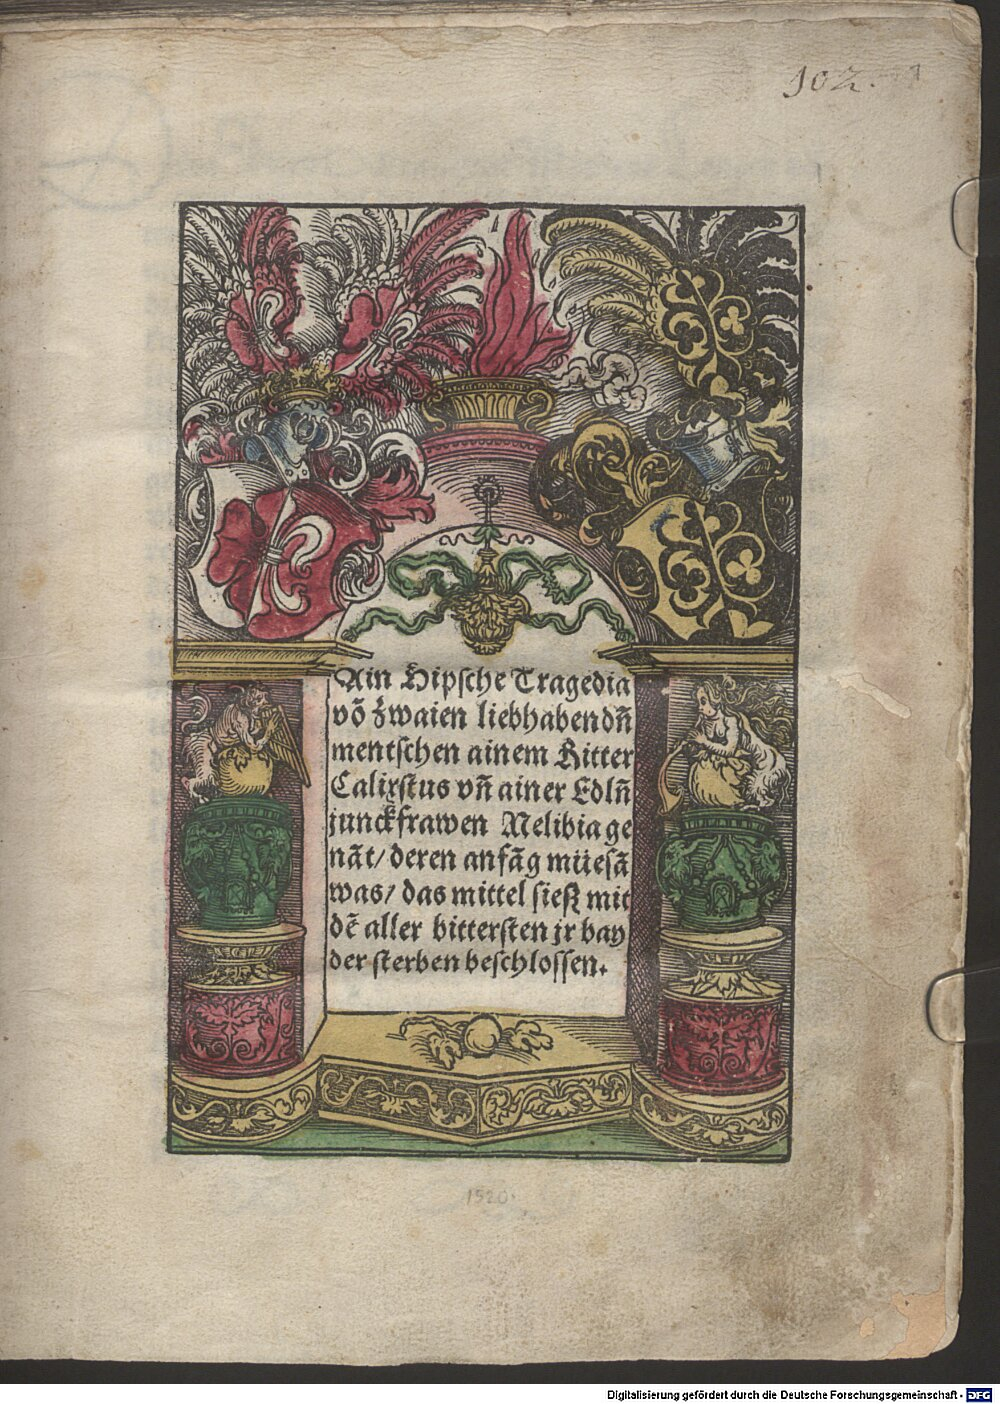 102.
Ain Hipsche Tragedia
võ zwaien liebhabendn̄
mentschen ainem Ritter
Calixstus vn̄ ainer Edln̄
junckfrawen Melibia ge
nãt/ deren anfãg müesã
was/ das mittel sieß mit
dẽ aller bittersten jr bay
der sterben beschlossen.
1520.
Digitalisierung gefördert durch die Deutsche Forschungsgemeinschaft - DFG